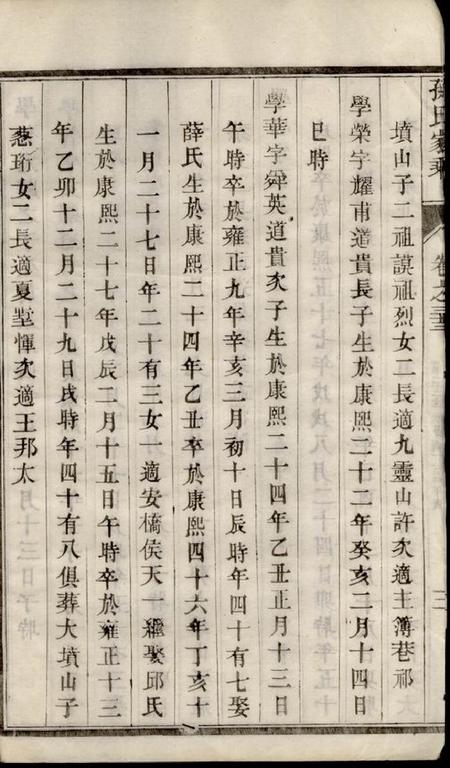 孫氏家乘
卷之三
三
墳山子二祖謨祖烈女二長適九靈山許次適主簿巷祁
學榮字耀甫道貴長子生於康熙二十二年癸亥二月十四日
巳時
學華字舜英道貴次子生於康熙二十四年乙丑正月十三日
午時卒於雍正九年辛亥三月初十日辰時年四十有七娶
薛氏生於康熙二十四年乙丑卒於康熙四十六年丁亥十
一月二十七日年二十有三女一適安橋侯天一繼娶邱氏
生於康熙二十七年戊辰二月十五日午時卒於雍正十三
年乙卯十二月二十九日戌時年四十有八俱葬大墳山子
蔥珩女二長適夏堂惲次適王邦太